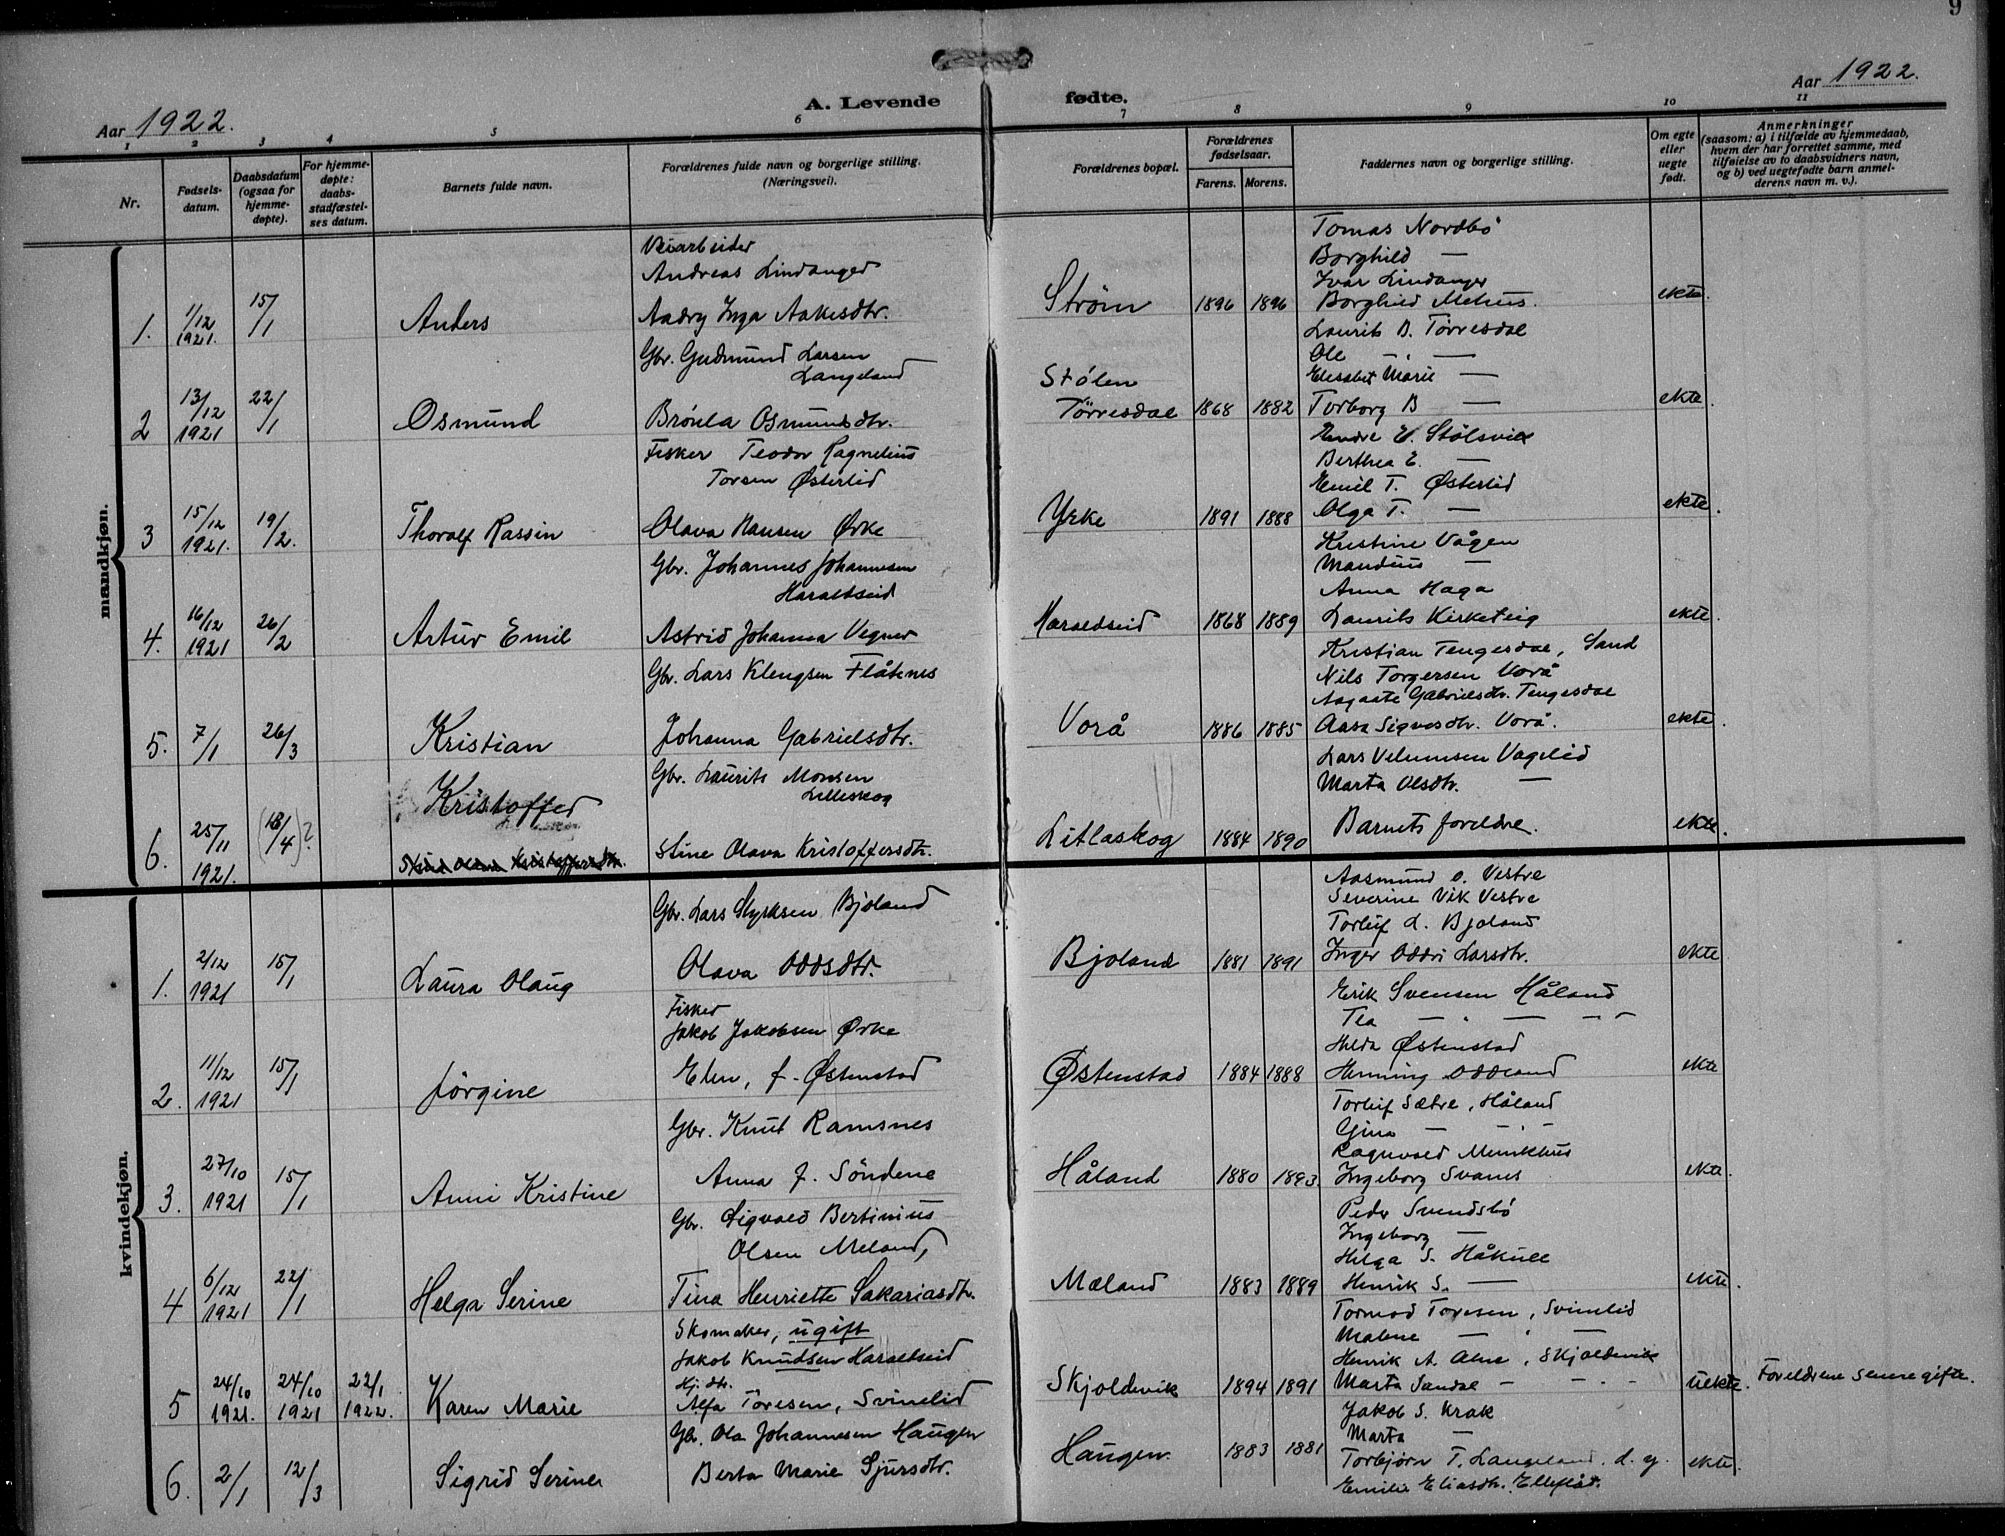 9
Aar 1922.
A. Levende
fødte.
Aar 1922.
1 2 3 4 5 6 7 8 9 10 11
Nr.
Fødsels-
datum.
Daabsdatum
(ogsaa for
hjemme-
døpte).
For hjemme-
døpte:
daabs-
stadfæstel-
ses datum.
Barnets fulde navn.
Forældrenes fulde navn og borgerlige stilling.
(Næringsvei).
Forældrenes bopæl.
Forældrenes
fødselsaar.
Farens. Morens.
Faddernes navn og borgerlige stilling.
Om egte
eller
uegte
født.
Anmerkninger
(saasom: a) i tilfælde av hjemmedaab,
hvem der har forrettet samme, med
tilføielse av to daabsvidners navn,
og b) ved uegtefødte barn anmel-
derens navn m. v.).
mandkjøn.
1. 1/12 1921. 15/1 Anders
Veiarbeider
Andreas Lindanger
Aadry Inga Aakesdtr.
Strøm 1896 1896
Tomas Nordbö
Borghild —
Ivar Lindanger
Borghild Mehus.
ekte.
2 13/12 1921 22/1 Osmund
Gbr. Gudmund Larsen
Langeland
Brönla Osmundsdtr.
Stølen
Tørresdal 1868 1882
Laurits B. Tørresdal
Ole — . —
Elisabet Marie —
Torborg B —
ekte.
3 15/12 1921. 19/2. Thoralf Rassin
Fisker Teodor Ragnelius
Torsen Østerlid
Olava Hansen Ørke
Yrke 1891 1888
Endre E. Stölsvik
Berthea E. —
Emil T. Østerlid
Olga T. —
ekte.
4. 16/12 1921 26/2 Artur Emil
Gbr. Johannes Johannesen
Haraldseid
Astrid Johanna Vegner
Haraldseid 1868 1889
Kristine Vågen
Mandius —
Anna Haga
Laurits Kirketeig
ekte.
5. 7/1 26/3 Kristian
Gbr. Lars Klengsen Flåtnes
Johanna Gabrielsdtr.
Vorå 1886 1885
Kristian Tengesdal, Sand
Nils Torgersen Vorå
Aagaate Gabrielsdtr. Tengesdal
Aasa Sigvesdtr. Vorå.
ekte.
6. 25/11 1921. (18/4)? Kristoffer
Stina Olava Kristoffersdtr.
Gbr. Laurits Monsen
Lilleskog
Stine Olava Kristoffersdtr.
Litlaskog 1884 1890
Lars Velumsen Vaglid
Marta Olsdtr. —
Barnets foreldre.
ekte.
kvindekjøn.
1. 2/12 1921 15/1 Laura Olaug
Gbr. Lars Styrksen Bjoland
Olava Oddsdtr.
Bjoland 1881 1891
Aasmund O. Vestre
Severine Vik Vestre
Torleif L. Bjoland
Inger Oddri Larsdtr.
ekte
2. 11/12 1921 15/1 Jörgine
Fisker
Jakob Jakobsen Ørke
Elen, f. Østenstad
Østenstad 1884 1888
Erik Svensen Håland
Tea — . — - -
Hilda Østenstad
Henning Oddland
ekte
3. 27/10 1921 15/1 Anni Kristine
Gbr. Knut Ramsnes
Anna f. Söndene
Håland 1880 1893.
Torleif Sætre, Håland
Gina — - . -
Ragnvald Munkhus
Ingeborg Svanes
ekte.
4 6/12 1921 22/1 Helga Serine
Gbr. Sigvald Bertinius
Olsen Meland,
Tina Henriette Sakariasdtr.
Mæland 1883 1889
Peder Svendsbö
Ingeborg —
Helga S. Håkull
Henrik S. —
ekte.
5 24/10 1921. 24/10 1921 22/1 1922. Karen Marie
Skomaker, ugift
Jakob Knudsen Haraldseid
Hj. dtr.
Alfa Toresen, Svinelid
Skjoldevik 1894 1891
Tormod Toresen, Svinelid
Malene — , —
Henrik A. Alne, Skjoldevik
Marta Sandal — - . -
uekte.
Foreldrene senere gifte.
6. 2/1 12/3 Sigrid Serine
Gbr. Ola Johannesen Haugen
Berta Marie Sjursdtr.
Haugen. 1883 1881
Jakob S. Krak
Marta —
Torbjørn T. Langeland. d. y.
Emilie Eliasdtr. Ellefsåt.
ekte.